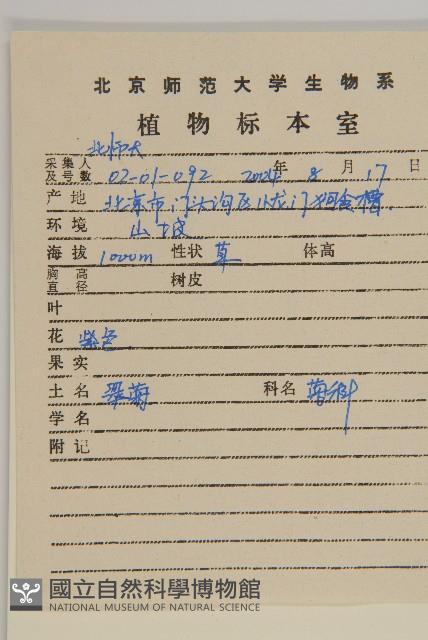 北京师范大学生物系
植物标本室
采集人及号数 北师大 02-01-092 2004年8月17日
产地 北京市门头沟区龙门狗食槽
环境 山坡
海拔 1000m 性状 草 体高
胸高直径 树皮
叶
花 紫色
果实
土名 翠菊 科名 菊科
学名
附记
國立自然科學博物館
NATIONAL MUSEUM OF NATURAL SCIENCE